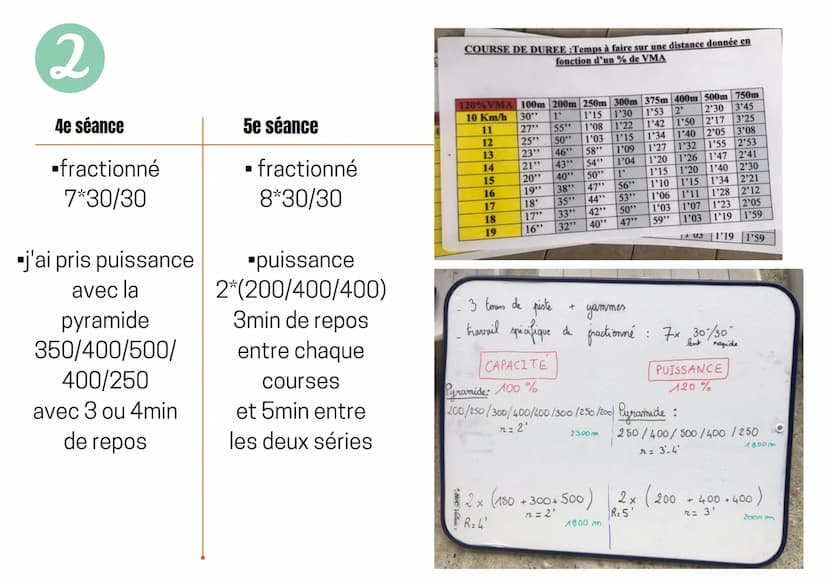 2
4e séance
▪fractionné
7*30/30
▪j'ai pris puissance
avec la
pyramide
350/400/500/
400/250
avec 3 ou 4min
de repos
5e séance
▪ fractionné
8*30/30
▪puissance
2*(200/400/400)
3min de repos
entre chaque
courses
et 5min entre
les deux séries
COURSE DE DUREE :Temps à faire sur une distance donnée en
fonction d'un % de VMA
120%VMA 100m 200m 250m 300m 375m 400m 500m 750m
10 Km/h 30'' 1' 1'15 1'30 1'53 2' 2'30 3'45
11 27'' 55'' 1'08 1'22 1'42 1'50 2'17 3'25
12 25'' 50'' 1'03 1'15 1'34 1'40 2'05 3'08
13 23'' 46'' 58'' 1'09 1'27 1'32 1'55 2'53
14 21'' 43'' 54'' 1'04 1'20 1'26 1'47 2'41
15 20'' 40'' 50'' 1' 1'15 1'20 1'40 2'30
16 19'' 38'' 47'' 56'' 1'10 1'15 1'34 2'21
17 18' 35'' 44'' 53'' 1'06 1'11 1'28 2'12
18 17'' 33'' 42'' 50'' 1'03 1'07 1'23 2'05
19 16'' 32'' 40'' 47'' 59'' 1'03 1'19 1'59
1'03 1'19 1'59
- 3 tours de piste + gammes
- travail spécifique de fractionné : 7x 30"/30"
lent rapide
CAPACITÉ
100 %
Pyramide:
200/250/300/400/400/300/250/200
r = 2'
2300m
2 x (150 + 300 + 500)
R = 4' r = 2'
1900 m
PUISSANCE
120 %
Pyramide :
250 / 400 / 500 / 400 / 250
r = 3'-4'
1800m
2 x (200 + 400 + 400)
R = 5' r = 3'
2000m